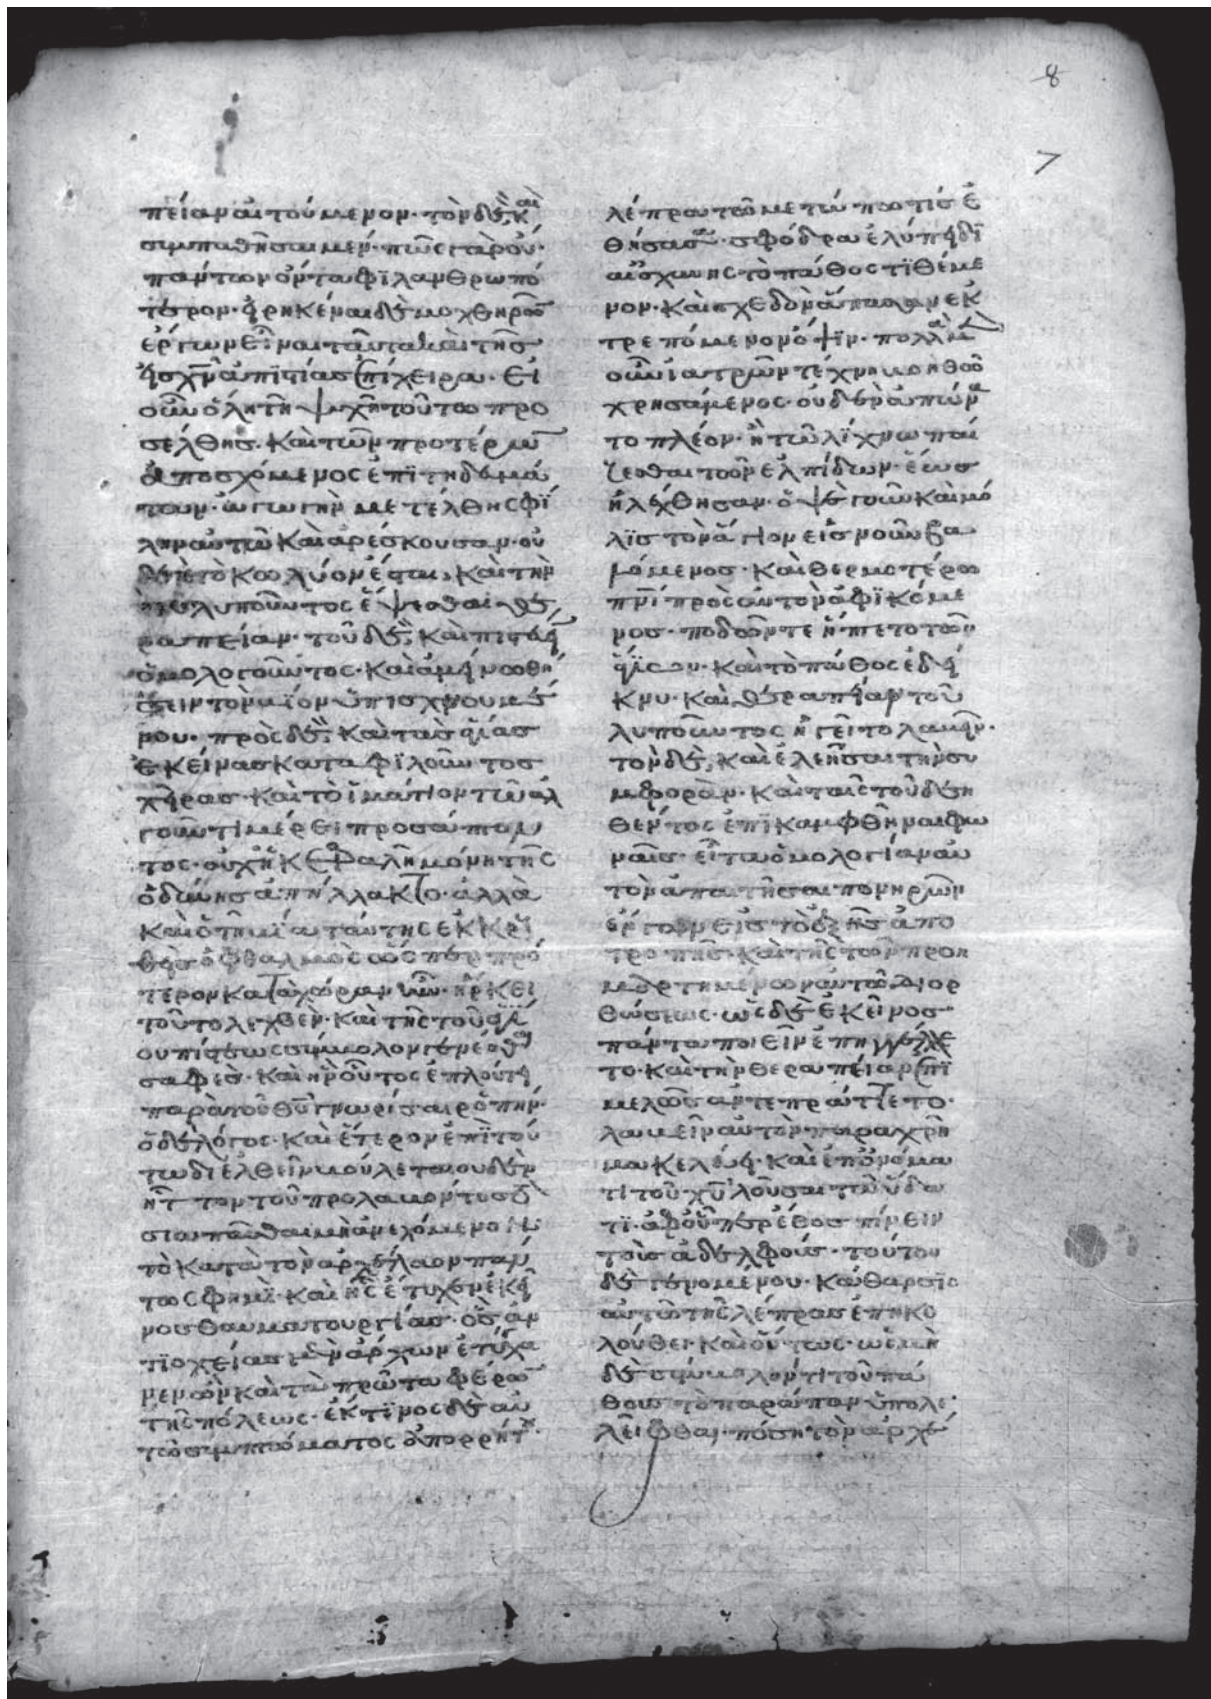 8
7
πείαν αἰτούμενον· τὸν δὲ, καὶ
συμπαθῆσαι μέν· πῶς γὰρ οὐ·
πάντων ὄντα φϊλανθρωπό
τερον· εἰρηκέναι δὲ μοχθηρῶν
ἔργων εἶναι ταῦτα καὶ τῆς
εἰς χν ἀπιστίας ἐπίχειρα· Εἰ
οὖν ὅλη τῆ ψυχῆ τούτω προ
σέλθης. Καὶ τῶν προτέρων
ἀποσχόμενος ἐπϊτηδευμά
των· ἀγωγὴν μετέλθης φϊ
λην αὐτῶ Καὶ ἀρέσκουσαν· οὐ
δὲ τὸ Κωλύον ἔσται, Καὶ τὴν
τοῦ λυποῦντος ἕψεσθαι θε
ραπείαν· τοῦ δὲ, Καὶ πιστεύειν
ὁμολογοῦντος· Καὶ ἀμείνω θή
σειν τὸν βϊον ὑπισχνουμέ
νου· πρὸς δὲ, Καὶ τὰς ἁγίας
ἐκείνας Καταφϊλοῦντος
χεῖρας· Καὶ τὸ ἱμάτιον τῶ ἀλ
γοῦντι μέρει προσάπτον
τος· οὐχ ἡ Κεφαλὴ μόνη τῆς
ὀδύνης ἀπήλλακτο· ἀλλὰ
Καὶ ὁ τῆ βία ταύτης ἐκκρϊ
θεὶς ὀφθαλμὸς ὥσπερ πρό
τερον Κατὰ χώραν ἦν· ἤρκει
τοῦτο λεχθὲν· Καὶ τῆς τοῦ ἁγί
ου πίστεως σύμβολον γενέσθαι
σαφὲς· Καὶ ἣν οὗτος ἐπλούτει
παρὰ τοῦ θυ γνωρίσαι ῥοπήν·
ὁ δὲ λόγος· Καὶ ἕτερον ἐπὶ τού
τω διελθεῖν βούλεται οὐδὲν
ἧττον τοῦ προλαβόντος
σιωπᾶσθαι μὴ ἀνεχόμενον·
τὸ Κατὰ τὸν ἀρχέλαον πάν
τως φημὶ· Καὶ ἧς ἔτυχον ἐκεῖ
νος θαυματουργίας· ὃς ἀν
τϊοχείας μὲν ἄρχων ἐτύγχα
νεν ὢν Καὶ τὰ πρῶτα φέρων
τῆς πόλεως· ἔκ τϊνος δὲ αὐ
τῶ συμπτώματος ἀπορρήτου·
λέπρα τῶ μετώπω τις ἐ
θήσασα· σφόδρα ἐλύπει δϊ
αἰσχύνης τὸ πάθος τϊθέμε
νον· Καὶ σχεδὸν ἅπασαν ἐκ
τρεπόμενον ὄψϊν· πολλῶν
οὖν ἰατρῶν τέχνη βοηθῶ
χρησάμενος· οὐδὲν ἀπώνα
το πλέον· ἢ τῶ λϊχνω παί
ζεσθαι τῶν ἐλπίδων· ἕως
ἠλέχθησαν· ὀψὲ γοῦν Καὶ μό
λϊς τὸν ἅγιον εἰς νοῦν βα
λόμενος· Καὶ θερμοτέρω
πνι πρὸς αὐτὸν ἀφϊκόμε
νος· ποδῶν τε ἥπτετο τῶν
ἁγίων· Καὶ τὸ πάθος ἐδεί
κνυ· Καὶ θεραπείαν τοῦ
λυποῦντος ἠτεῖτο λαβεῖν·
τὸν δὲ, Καὶ ἐλεῆσαι τὴν συ
μφορὰν· Καὶ ταῖς τοῦ δεη
θέντος ἐπϊκαμφθῆναι φω
ναῖς· εἶτα ὁμολογίαν αὐ
τὸν ἀπαιτῆσαι πονηρῶν
ἔργων εἰς τὸ ἑξῆς ἀπο
τροπῆς· Καὶ τῆς τῶν προη
μαρτημένων αὐτῶ διορ
θώσεως· ὡς δὲ ἐκεῖνος
πάντα ποιεῖν ἐπηγγέλλε
το· Καὶ τὴν θεραπείαν ἐπϊ
μελῶς ἀντεπράττετο·
λαβεῖν αὐτὸν παραχρῆ
μα Κελεύει· Καὶ ἐπ' ὀνόμα
τι τοῦ χυ λοῦσαι τῶ ὕδα
τϊ· ἀφ' οὗπερ ἔθος πίνειν
τοῖς ἀδελφοῖς· τούτου
δὲ γενομένου· Κάθαρσϊς
αὐτῶ τῆς λέπρας ἐπηκο
λούθει· Καὶ οὕτως· ὡς μὴ
δὲ σύμβολόν τι τοῦ πά
θους τὸ παράπαν ὑπολε
λεῖφθαι· πόση τὸν ἀρχέ